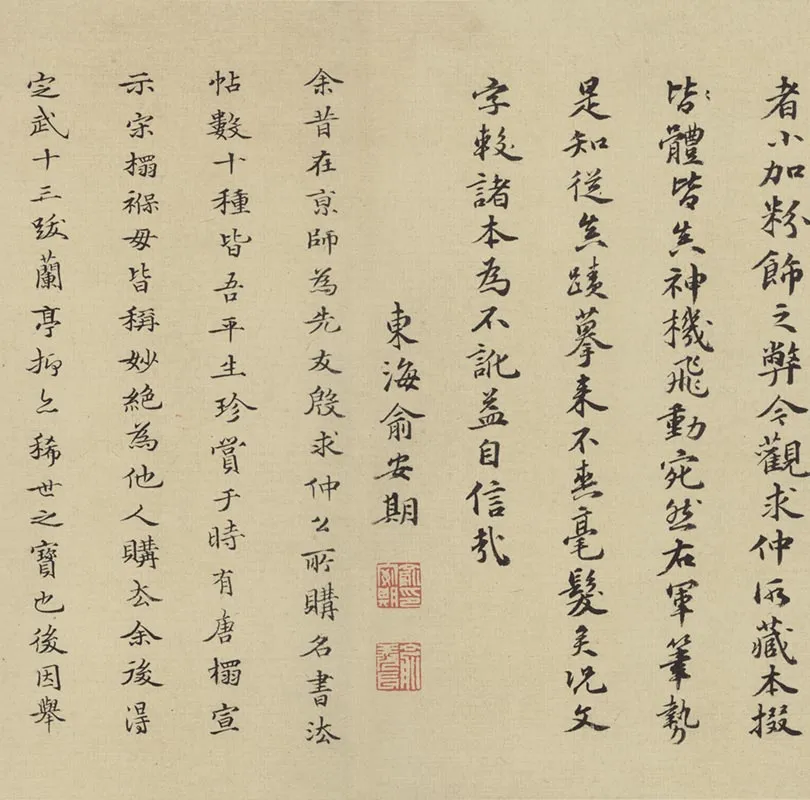 者小加粉飾之弊今觀求仲所藏本掇
皆體皆真神機飛動宛然右軍筆勢
是知從真蹟摹来不爽毫髮矣況文
字較諸本為不訛益自信哉
東海俞安期
余昔在亰師為先友殷求仲公所購名書法
帖數十種皆吾平生珍賞于時有唐榻宣
示宋榻褓母皆稱妙絕為他人購去余後得
定武十三跋蘭亭抑亦稀世之寶也後因舉